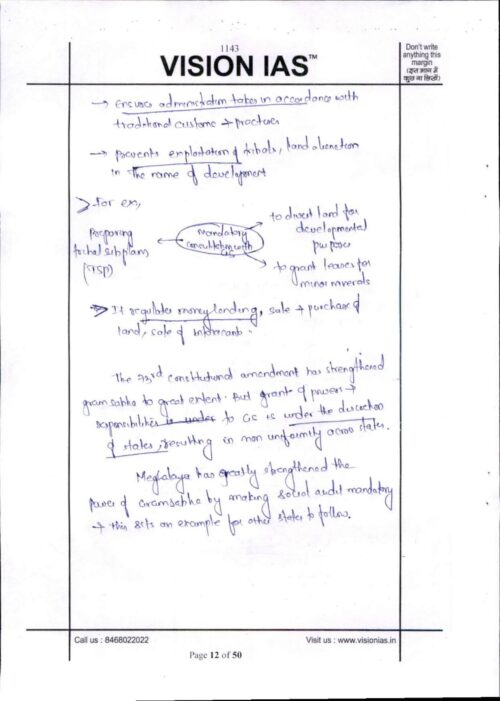 1143
VISION IAS™
Don't write
anything this
margin
(इस भाग में
कुछ ना लिखें)
→ Ensures administration takes in accordance with
traditional customs + practices
→ prevents exploitation of tribals, land alienation
in the name of development
> For ex,
Preparing
tribal subplan
(TSP)
Mandatory
consultation with
GS
to divert land for
developmental
purposes
to grant leases for
minor minerals
> It regulates money lending, sale + purchase of
land, sale of intoxicants.
The 73rd constitutional amendment has strengthened
gram sabha to great extent. But grant of powers +
responsibilities is under to GS is under the discretion
of states, resulting in non uniformity across states.
Meghalaya has greatly strengthened the
power of Gramsabha by making social audit mandatory
+ this sets an example for other states to follow.
Call us : 8468022022
Visit us : www.visionias.in
Page 12 of 50